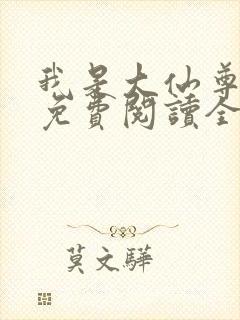 我是大仙尊
免費閱讀全
莫文驊